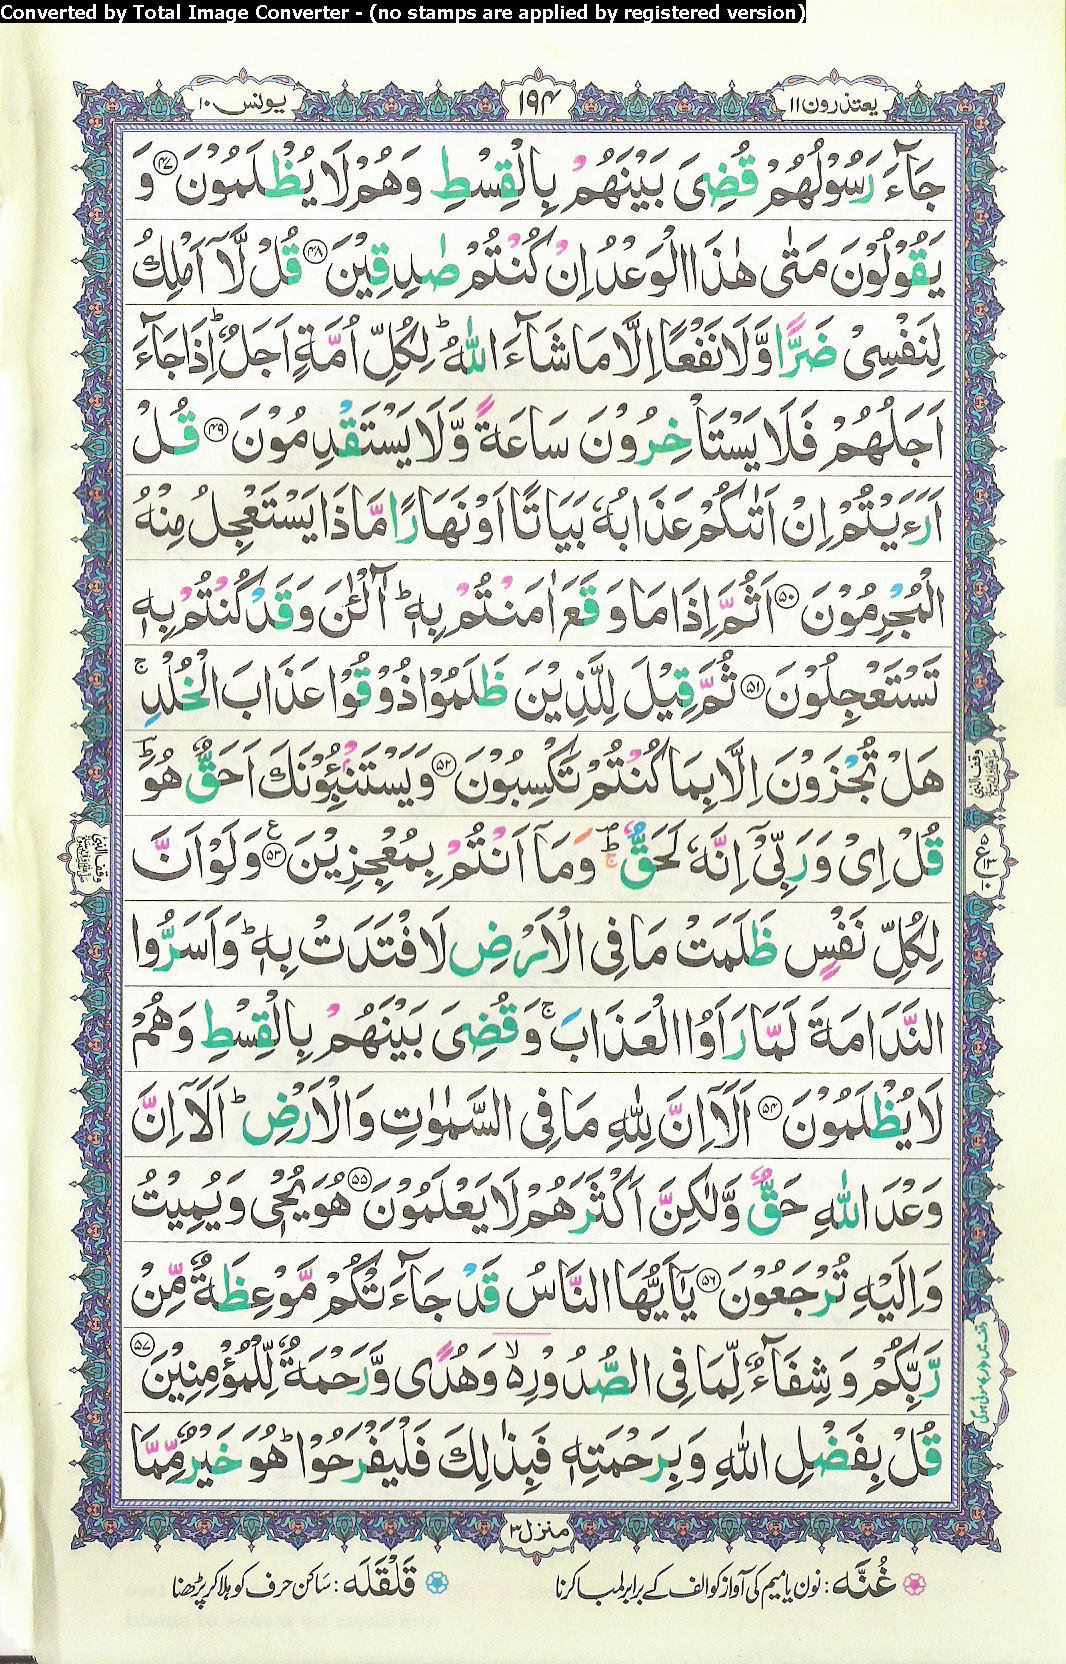 Converted by Total Image Converter - (no stamps are applied by registered version)
یعتذرون ۱۱
۱۹۴
یونس ۱۰
جَآءَ رَسُوْلُهُمْ قُضِیَ بَیْنَهُمْ بِالْقِسْطِ وَهُمْ لَا یُظْلَمُوْنَ ﴿۴۷﴾ وَ
یَقُوْلُوْنَ مَتٰی هٰذَا الْوَعْدُ اِنْ كُنْتُمْ صٰدِقِیْنَ ﴿۴۸﴾ قُلْ لَّاۤ اَمْلِكُ
لِنَفْسِیْ ضَرًّا وَّلَا نَفْعًا اِلَّا مَا شَآءَ اللّٰهُ ؕ لِكُلِّ اُمَّةٍ اَجَلٌ ؕ اِذَا جَآءَ
اَجَلُهُمْ فَلَا یَسْتَاْخِرُوْنَ سَاعَةً وَّلَا یَسْتَقْدِمُوْنَ ﴿۴۹﴾ قُلْ
اَرَءَیْتُمْ اِنْ اَتٰىكُمْ عَذَابُهٗ بَیَاتًا اَوْ نَهَارًا مَّاذَا یَسْتَعْجِلُ مِنْهُ
الْمُجْرِمُوْنَ ﴿۵۰﴾ اَثُمَّ اِذَا مَا وَقَعَ اٰمَنْتُمْ بِهٖ ؕ آٰلْـٰٔنَ وَقَدْ كُنْتُمْ بِهٖ
تَسْتَعْجِلُوْنَ ﴿۵۱﴾ ثُمَّ قِیْلَ لِلَّذِیْنَ ظَلَمُوْا ذُوْقُوْا عَذَابَ الْخُلْدِ ۚ
هَلْ تُجْزَوْنَ اِلَّا بِمَا كُنْتُمْ تَكْسِبُوْنَ ﴿۵۲﴾ وَیَسْتَنْۢبِـُٔوْنَكَ اَحَقٌّ هُوَ ؕؔ
وقف النبی
قُلْ اِیْ وَرَبِّیْۤ اِنَّهٗ لَحَقٌّ ؕۚ وَمَاۤ اَنْتُمْ بِمُعْجِزِیْنَ ﴿۵۳﴾ وَلَوْ اَنَّ
۵ ع ۱۳ ۱۰
وقف النبی
لِكُلِّ نَفْسٍ ظَلَمَتْ مَا فِی الْاَرْضِ لَافْتَدَتْ بِهٖ ؕ وَاَسَرُّوا
النَّدَامَةَ لَمَّا رَاَوُا الْعَذَابَ ۚ وَقُضِیَ بَیْنَهُمْ بِالْقِسْطِ وَهُمْ
لَا یُظْلَمُوْنَ ﴿۵۴﴾ اَلَاۤ اِنَّ لِلّٰهِ مَا فِی السَّمٰوٰتِ وَالْاَرْضِ ؕ اَلَاۤ اِنَّ
وَعْدَ اللّٰهِ حَقٌّ وَّلٰكِنَّ اَكْثَرَهُمْ لَا یَعْلَمُوْنَ ﴿۵۵﴾ هُوَ یُحْیٖ وَیُمِیْتُ
وَاِلَیْهِ تُرْجَعُوْنَ ﴿۵۶﴾ یٰۤاَیُّهَا النَّاسُ قَدْ جَآءَتْكُمْ مَّوْعِظَةٌ مِّنْ
رَّبِّكُمْ وَشِفَآءٌ لِّمَا فِی الصُّدُوْرِ ۙ۬ وَهُدًی وَّرَحْمَةٌ لِّلْمُؤْمِنِیْنَ ﴿۵۷﴾
قُلْ بِفَضْلِ اللّٰهِ وَبِرَحْمَتِهٖ فَبِذٰلِكَ فَلْیَفْرَحُوْا ؕ هُوَ خَیْرٌ مِّمَّا
منزل ۳
غُنَّه : نون یا میم کی آواز کو الف کے برابر لمبا کرنا
قَلْقَلَه : ساکن حرف کو ہلا کر پڑھنا